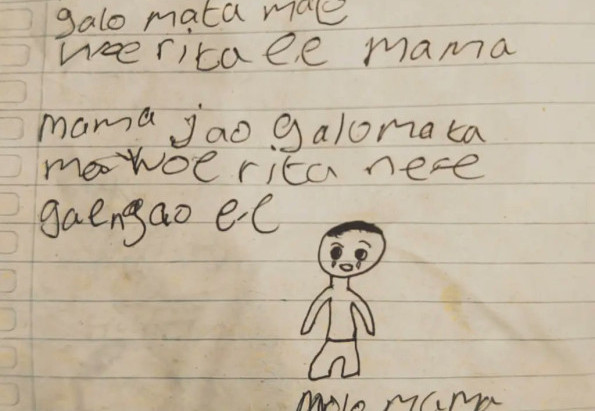 galo mata male
woe rita e.e mama
mama jao galomata
ma woe rita nese
gaengao e-e
molo mama